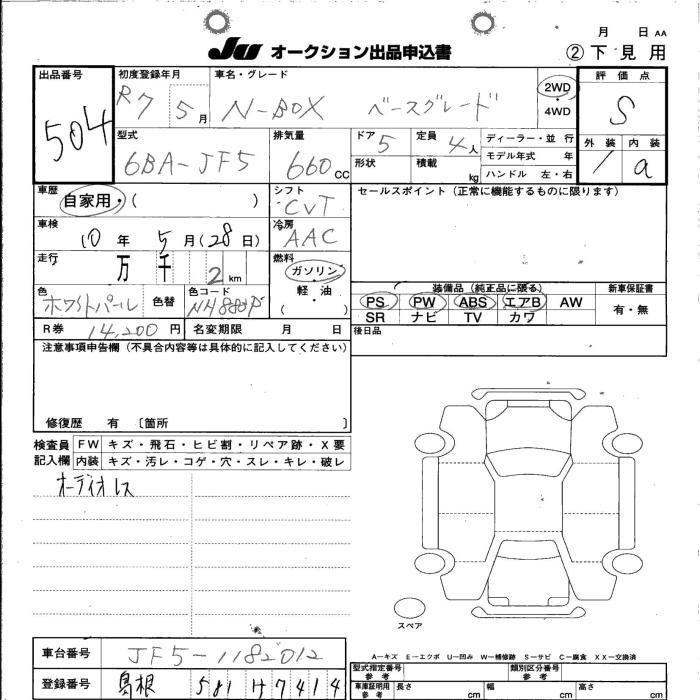 月 日 AA
JU オークション出品申込書 ②下見用
出品番号 504
初度登録年月 R7 5月
車名・グレード N-BOX ベースグレード
2WD・4WD
評価点 S
外装 1 内装 a
型式 6BA-JF5
排気量 660 CC
ドア 5 定員 4人 ディーラー・並行
形状 積載 kg モデル年式 年
ハンドル 左・右
車歴 自家用・( )
シフト CVT
セールスポイント(正常に機能するものに限ります)
車検 10年 5月(28日)
冷房 AAC
走行 万 千 2 km
燃料 ガソリン・軽油・( )
装備品(純正品に限る) 新車保証書
PS PW ABS エアB AW 有・無
SR ナビ TV カワ
色 ホワイトパール 色替 色コード NH883P
R券 14,200円 名変期限 月 日 後日品
注意事項申告欄(不具合内容等は具体的に記入してください)
修復歴 有 [箇所 ]
検査員記入欄
FW キズ・飛石・ヒビ割・リペア跡・X要
内装 キズ・汚レ・コゲ・穴・スレ・キレ・破レ
オーディオレス
スペア
A-キズ E-エクボ U-凹み W-補修跡 S-サビ C-腐食 XX-交換済
車台番号 JF5-1182012
型式指定番号 参考 類別区分番号 参考
登録番号 島根 581 け 7414
車庫証明用 参考 長さ cm 幅 cm 高さ cm